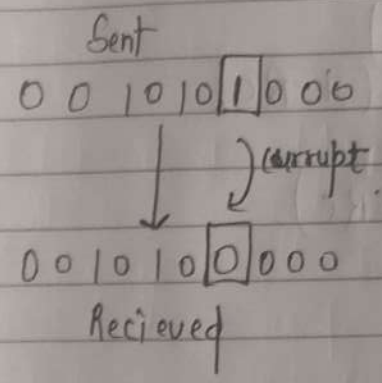 Sent
0 0 1 0 1 0 1 0 0 0
currupt
0 0 1 0 1 0 0 0 0 0
Recieved